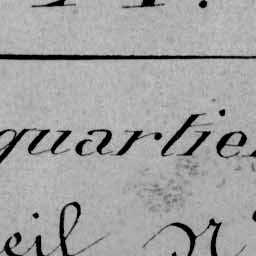 quartier
eil N